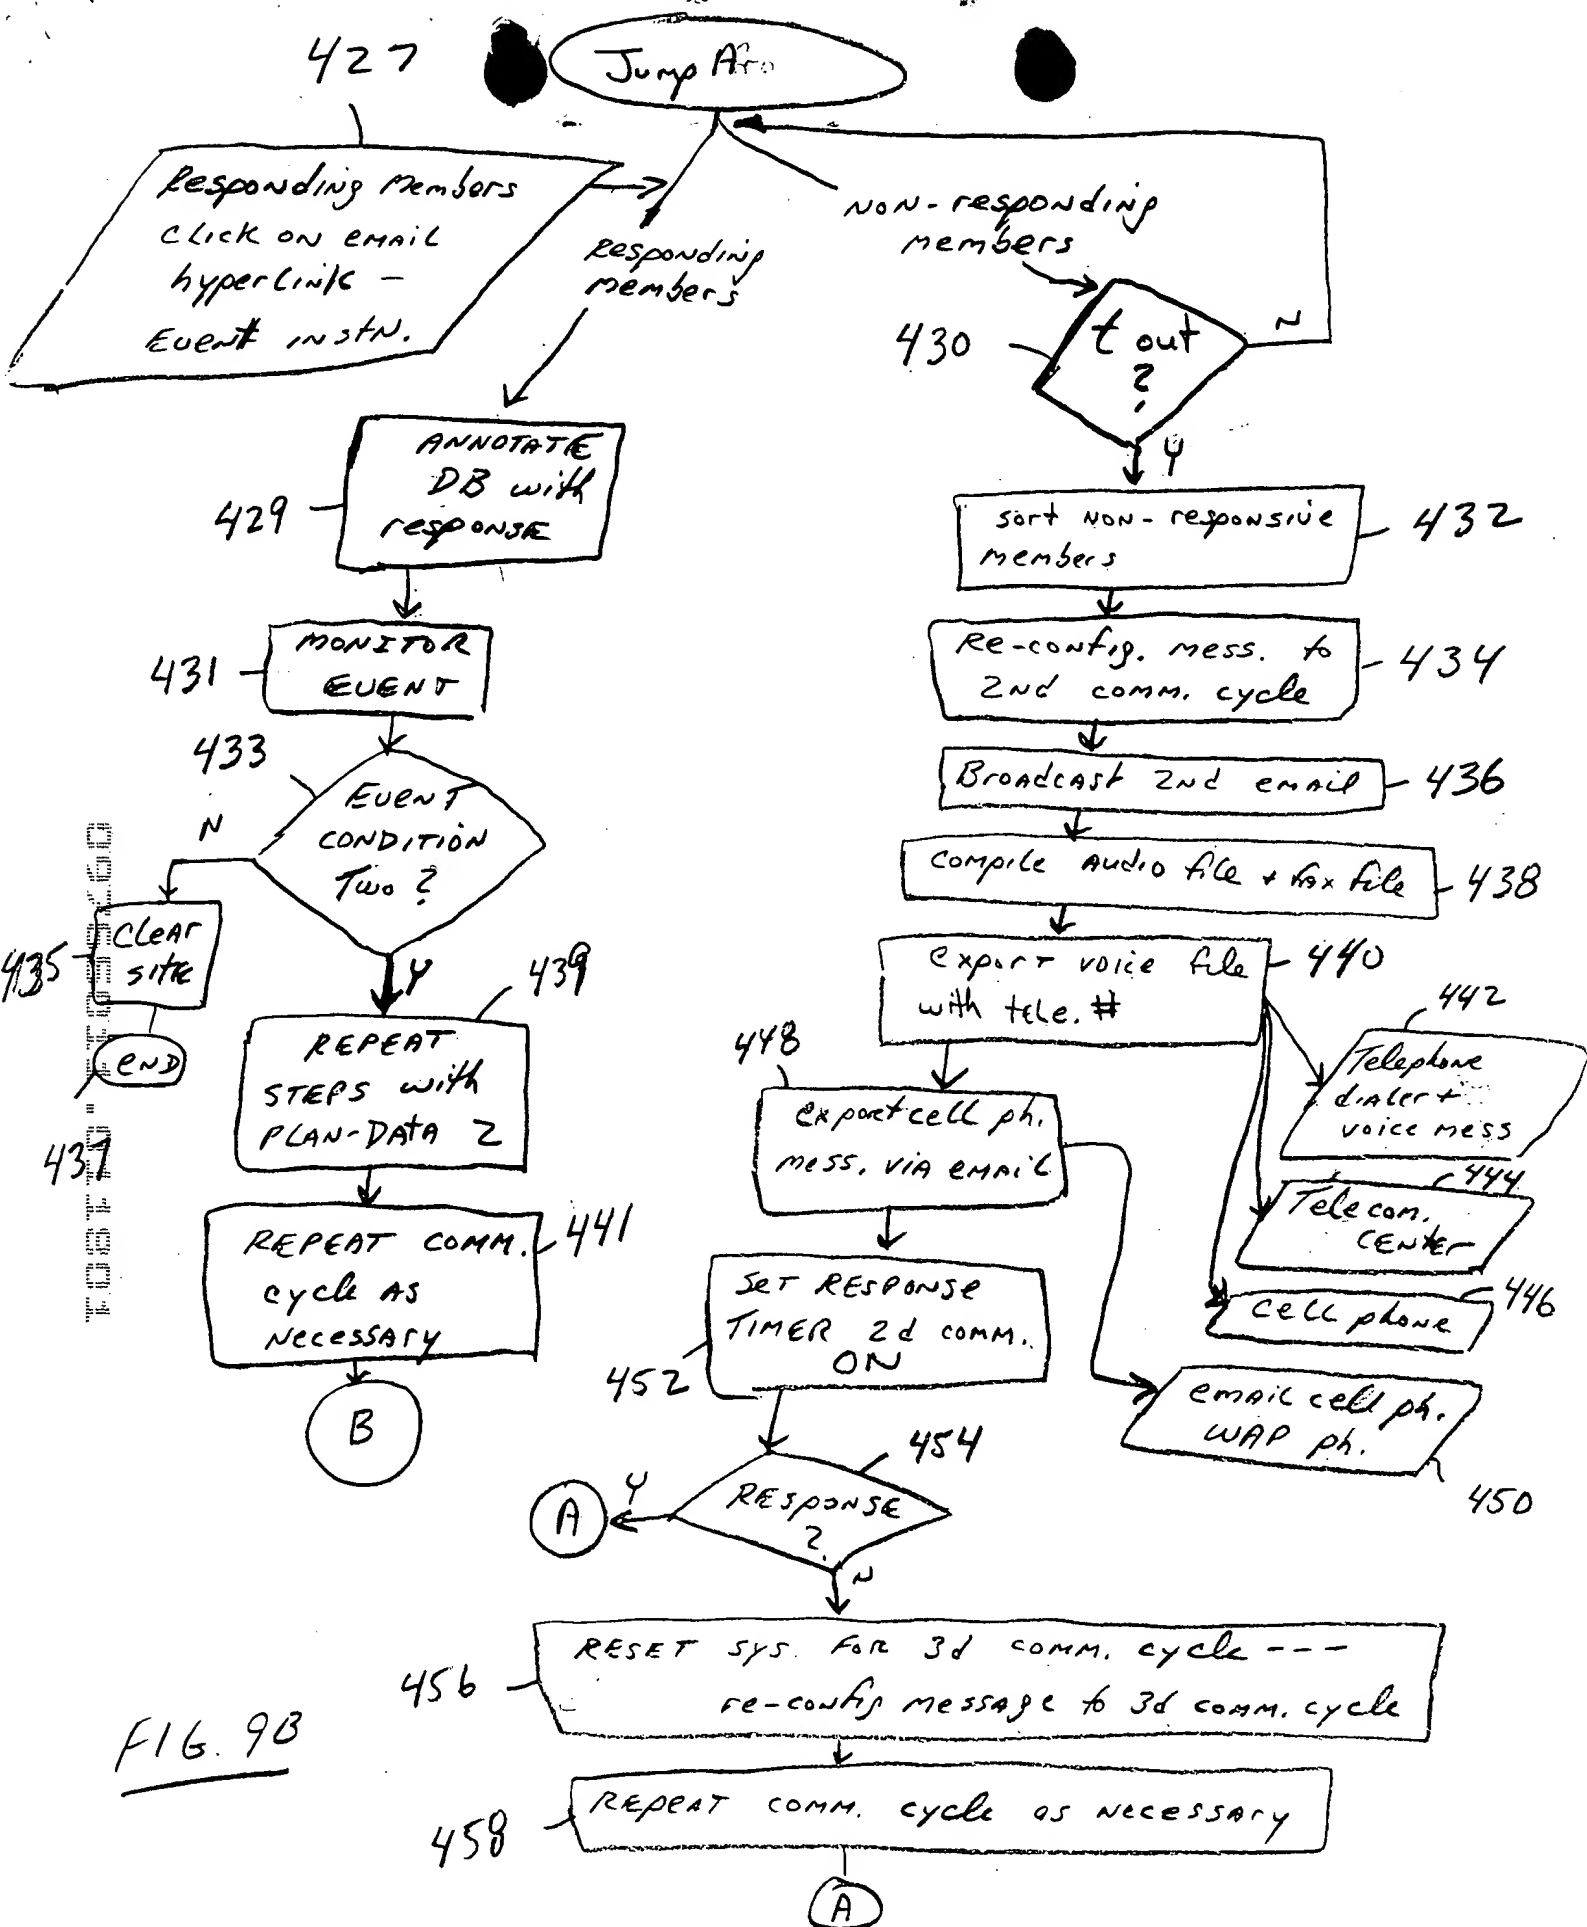 427
Jump
Responding Members
click on email
hyperlink -
Event instn.
Responding
members
Non-responding
members
430
t out
?
N
Y
ANNOTATE
DB with
response
429
sort non-responsive
members
432
MONITOR
EVENT
431
Re-config. mess. to
2nd comm. cycle
434
433
EVENT
CONDITION
Two ?
N
Y
Broadcast 2nd email
436
compile Audio file + fax file
438
clear
site
435
end
437
439
REPEAT
STEPS with
PLAN-DATA 2
export voice file
with tele. #
440
442
Telephone
dialer +
voice mess
448
export cell ph.
mess. via email
444
Telecom.
CENTER
446
cell phone
REPEAT COMM.
cycle AS
Necessary
441
SET RESPONSE
TIMER 2d comm.
ON
452
email cell ph.
WAP ph.
450
B
454
RESPONSE
?
Y
A
N
RESET sys. FOR 3d comm. cycle ---
re-config message to 3d comm. cycle
456
FIG. 9B
REPEAT comm. cycle as necessary
458
A